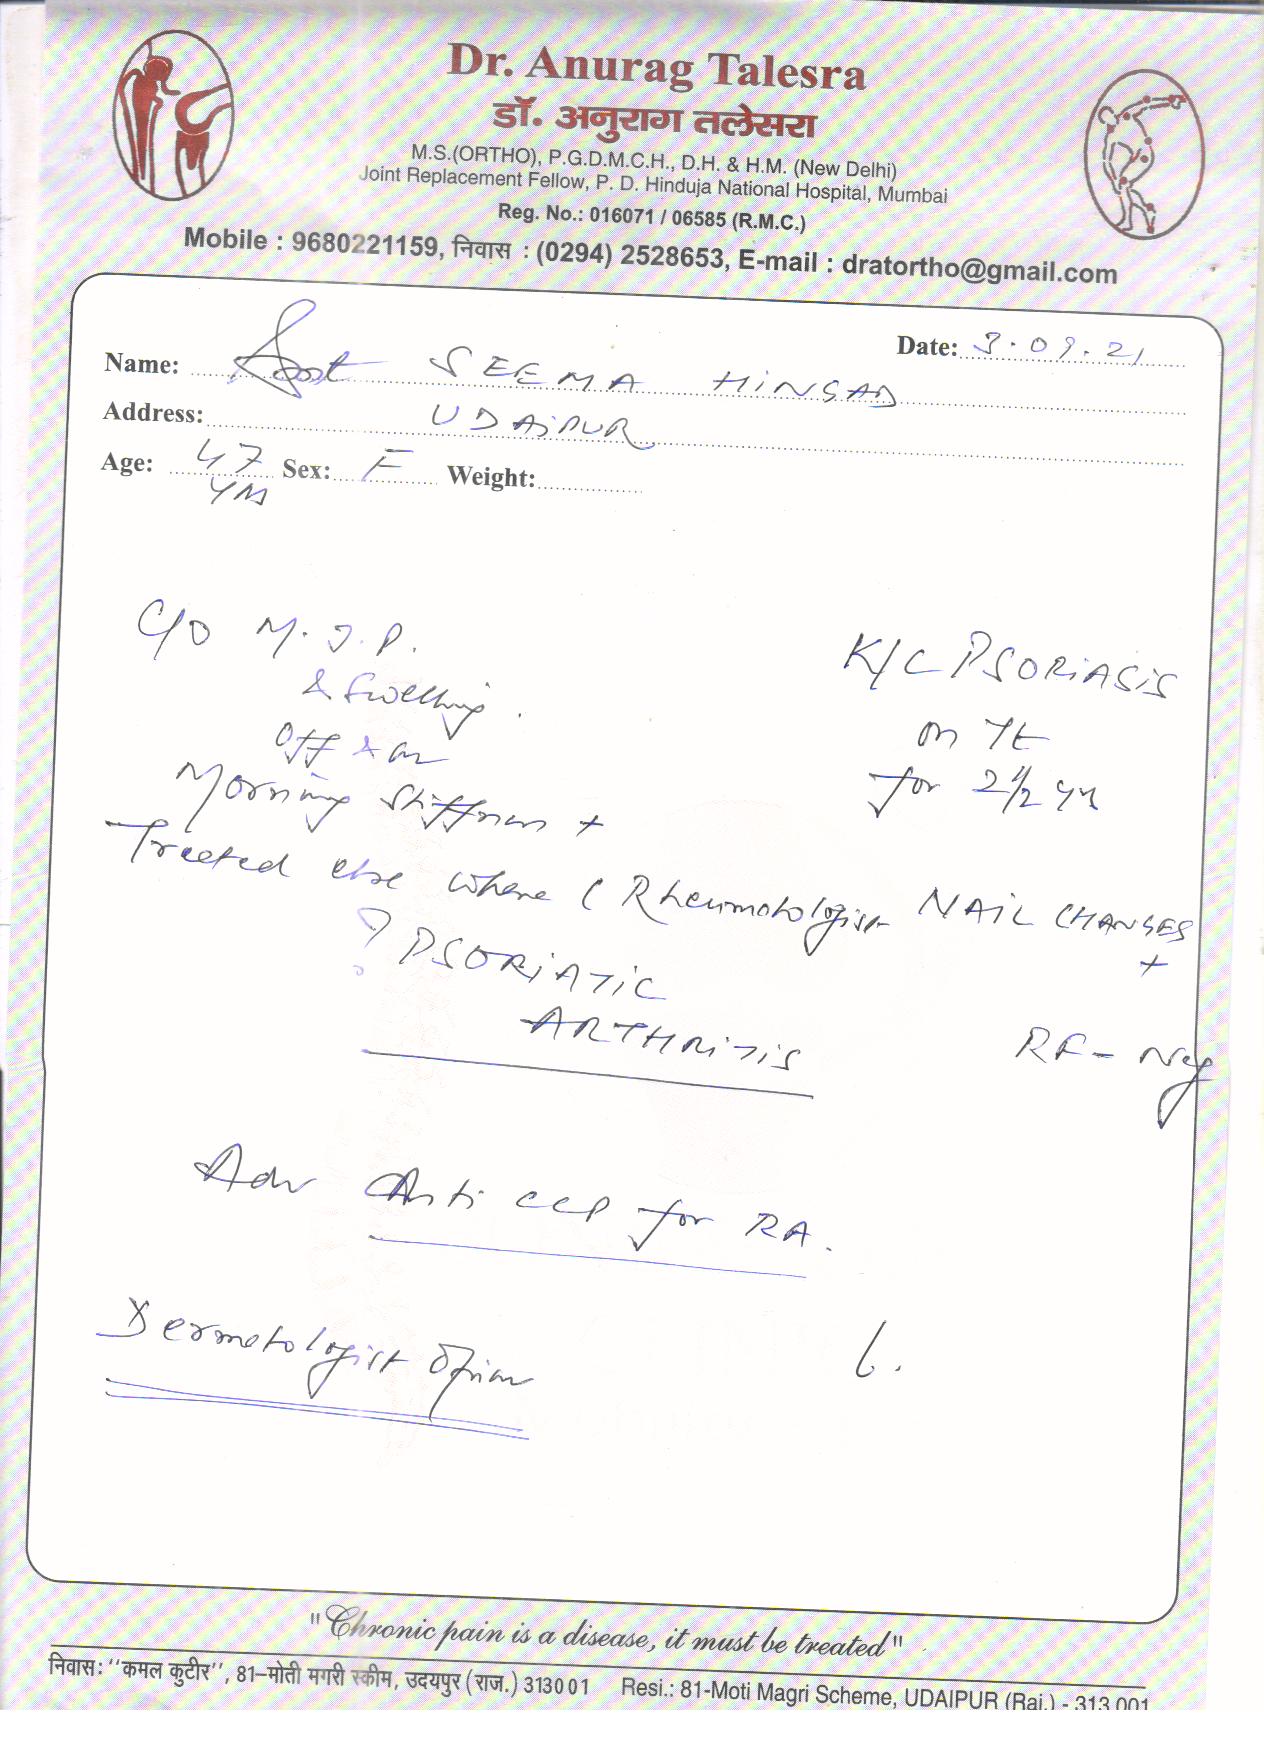 Dr. Anurag Talesra
डॉ. अनुराग तलेसरा
M.S.(ORTHO), P.G.D.M.C.H., D.H. & H.M. (New Delhi)
Joint Replacement Fellow, P. D. Hinduja National Hospital, Mumbai
Reg. No.: 016071 / 06585 (R.M.C.)
Mobile : 9680221159, निवास : (0294) 2528653, E-mail : dratortho@gmail.com
Date: 3.09.21
Name: SEEMA HINGAD
Address: UDAIPUR
Age: 47 Sex: F Weight:
C/O M.J.P.
& Swelling.
Off & on
Morning Stiffness +
K/C PSORIASIS
on
for 2 1/2 yr
Treated else where ( Rheumatologist
NAIL CHANGES
+
? PSORIATIC
ARTHRITIS
RF - Neg
Adv Anti CCP for RA.
Dermatologist Opinion
"Chronic pain is a disease, it must be treated"
निवास: ''कमल कुटीर'', 81–मोती मगरी स्कीम, उदयपुर (राज.) 313001 Resi.: 81-Moti Magri Scheme, UDAIPUR (Raj.) - 313 001